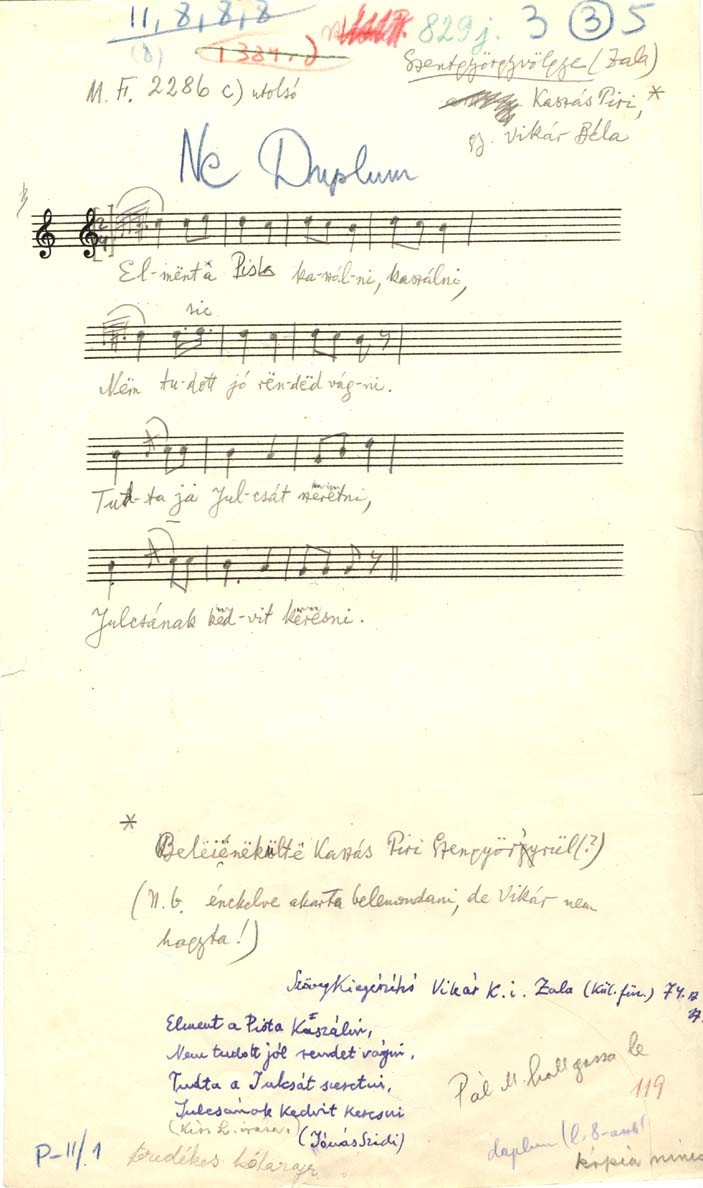 11, 8, 8, 8
829j. 3 ③ 5
(8) 1384.d
Szentgyörgyvölgye (Zala)
M. F. 2286 c) utolsó
Kaszás Piri, *
gy. Vikár Béla
Ne Duplum
El-mënt a Pista ka-szál-ni, kaszálni,
sic
Nëm tu-dott jó rën-dëd vág-ni.
Tud-ta ja Jul-csát szeretni,
Julcsának këd-vit kërësni.
*
Beleiénekültë Kaszás Piri Szengyörgyrül (?)
(N.b. énekelve akarta belemondani, de Vikár nem
hagyta!)
Szövegkiegészítés Vikár K. i. Zala (Kül. füz.) 74.
Elment a Pista Kaszálni,
Nem tudott jól rendet vágni,
Tudta a Julcsát szeretni,
Julcsának Kedvit Keresni
Pál M. hallgassa le
119
(Jónás Szidi)
P-II/.1 töredékes
duplum
kópia nincs